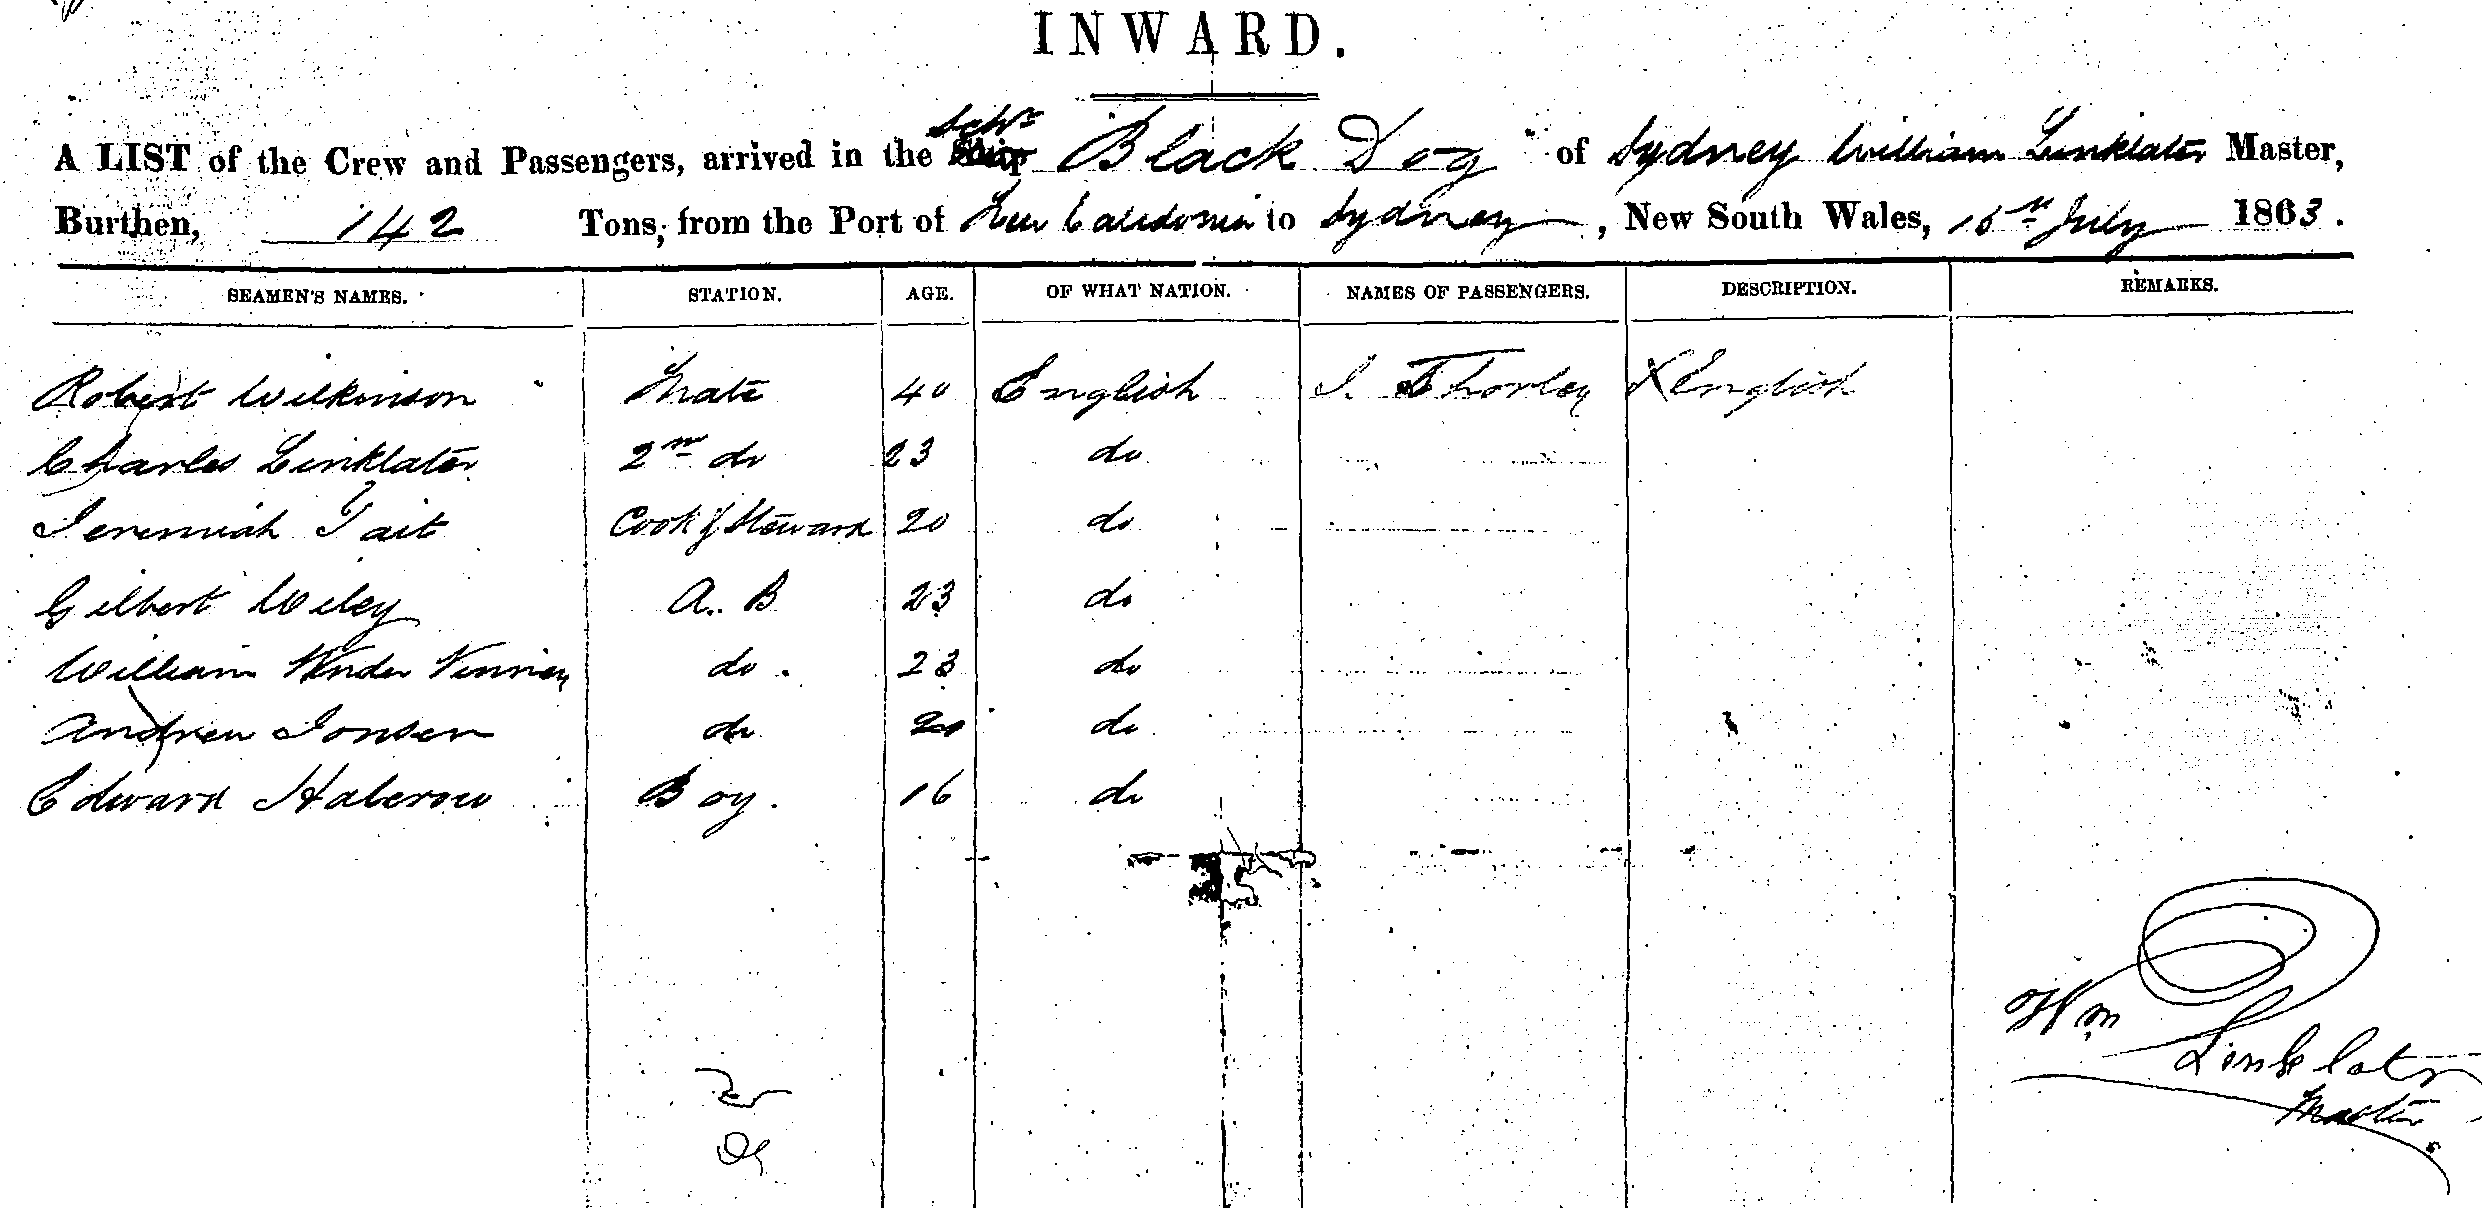 INWARD.
Schr
A LIST of the Crew and Passengers, arrived in the Ship Black Dog of Sydney William Linklater Master,
Burthen, 142 Tons, from the Port of New Caledonia to Sydney, New South Wales, 15th July 1863.
SEAMEN'S NAMES. STATION. AGE. OF WHAT NATION. NAMES OF PASSENGERS. DESCRIPTION. REMARKS.
Robert Wilkinson Mate 40 English J. Thorley English
Charles Linklater 2nd do 23 do
Jeremiah Tait Cook & Steward 20 do
Gilbert Wiley A. B 23 do
William 23 do
do.
Andrew Jonsen do 20 do
Edward Halcrow Boy. 16 do
Wm
Linklater
Master